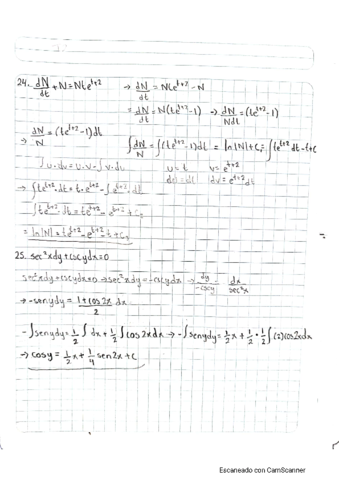 24. dN/dt + N = Nte^{t+2} → dN/dt = Nte^{t+2} - N
→ dN/dt = N(te^{t+2} - 1) → dN/Ndt = (te^{t+2} - 1)
→ dN/N = (te^{t+2} - 1)dt ∫dN/N = ∫(te^{t+2} - 1)dt = ln|N| + C = ∫te^{t+2}dt - t + C
∫u·dv = u·v - ∫v·du u = t v = e^{t+2}
du = dt dv = e^{t+2}dt
→ ∫te^{t+2}dt = t·e^{t+2} - ∫e^{t+2}dt
∫te^{t+2}dt = te^{t+2} - e^{t+2} + C
= ln|N| = te^{t+2} - e^{t+2} - t + C
25. sec²xdy + cscydx = 0
sec²xdy + cscydx = 0 → sec²xdy = -cscydx → dy/-cscy dx/sec²x
→ -senydy = 1 + cos2x/2 dx
-∫senydy = 1/2∫dx + 1/2∫cos2xdx → -∫senydy = 1/2x + 1/2·1/2∫(2)cos2xdx
→ cosy = 1/2x + 1/4 sen2x + C
Escaneado con CamScanner